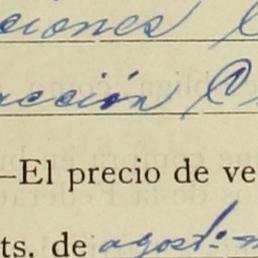 ciones
acción
—El precio de ve
ts. de agost.